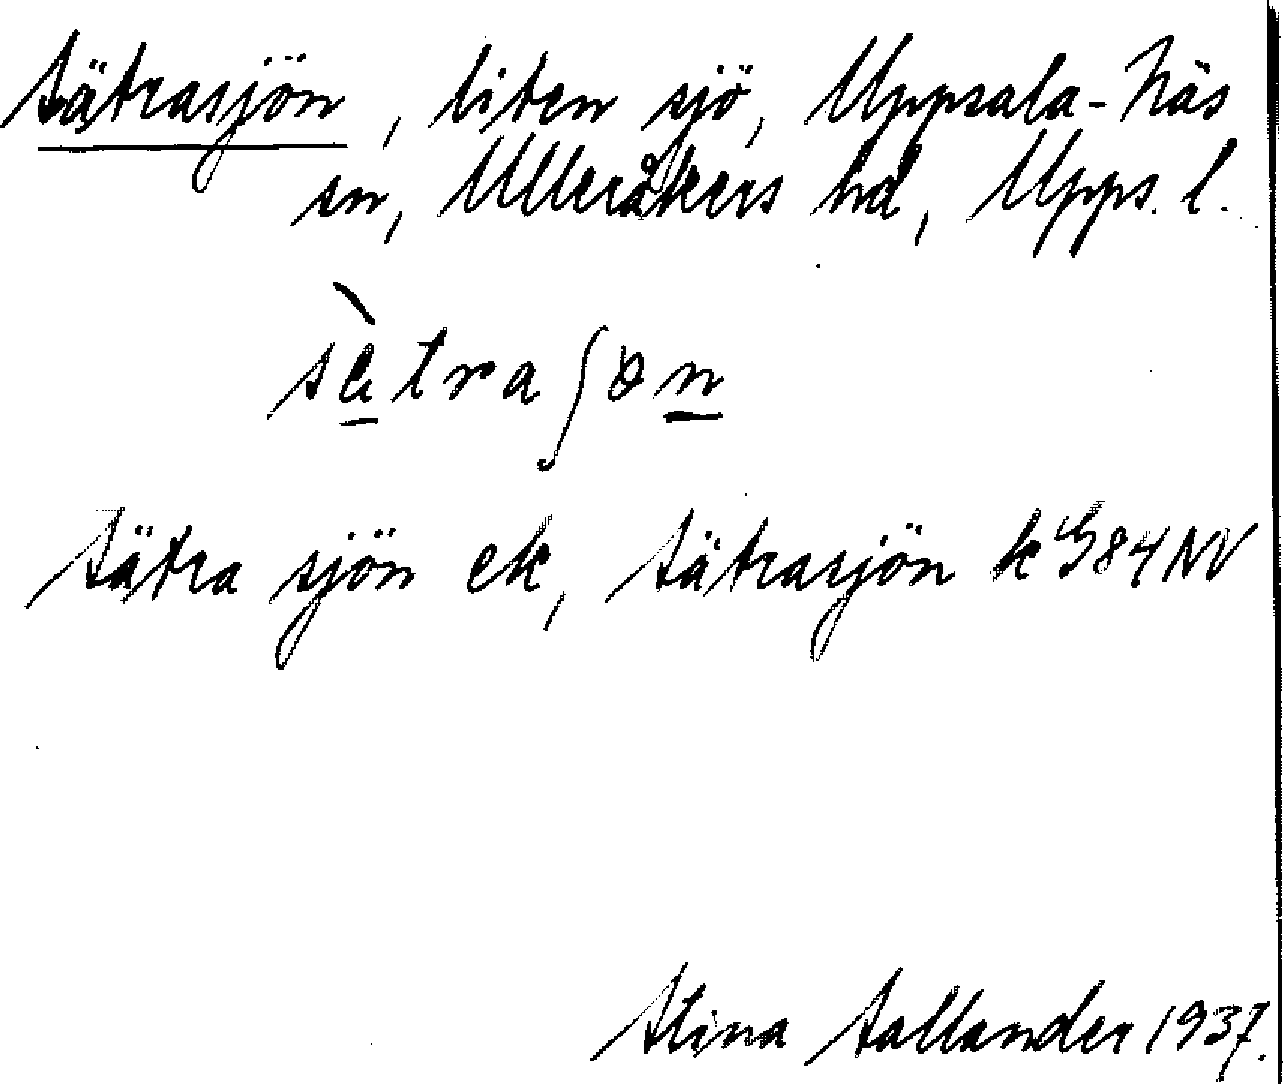 Sätrasjön, liten sjö, Uppsala-Näs
sn, Ulleråkers hd, Upps. l.
sätraʃøn
Sätra sjön ek, Sätrasjön k G84NV
Stina Sallander 1937.